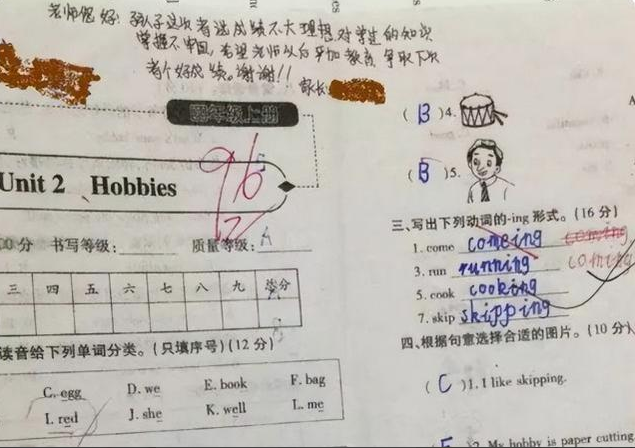 老师您好：孩子这次考试成绩不太理想，对学过的知识
掌握不牢固，希望老师以后严加教育，争取下次
考个好成绩。谢谢！！ 家长：
四年级上册
96
Unit 2 Hobbies
00分 书写等级： 质量等级：A
三 四 五 六 七 八 九 总分
读音给下列单词分类。(只填序号)(12分)
C. egg D. we E. book F. bag
I. red J. she K. well L. me
( B )4.
( B )5.
三、写出下列动词的-ing 形式。(16分)
1. come comeing coming
coming
3. run running
5. cook cooking
7. skip skipping
四、根据句意选择合适的图片。(10分)
( C )1. I like skipping.
2. My hobby is paper cutting